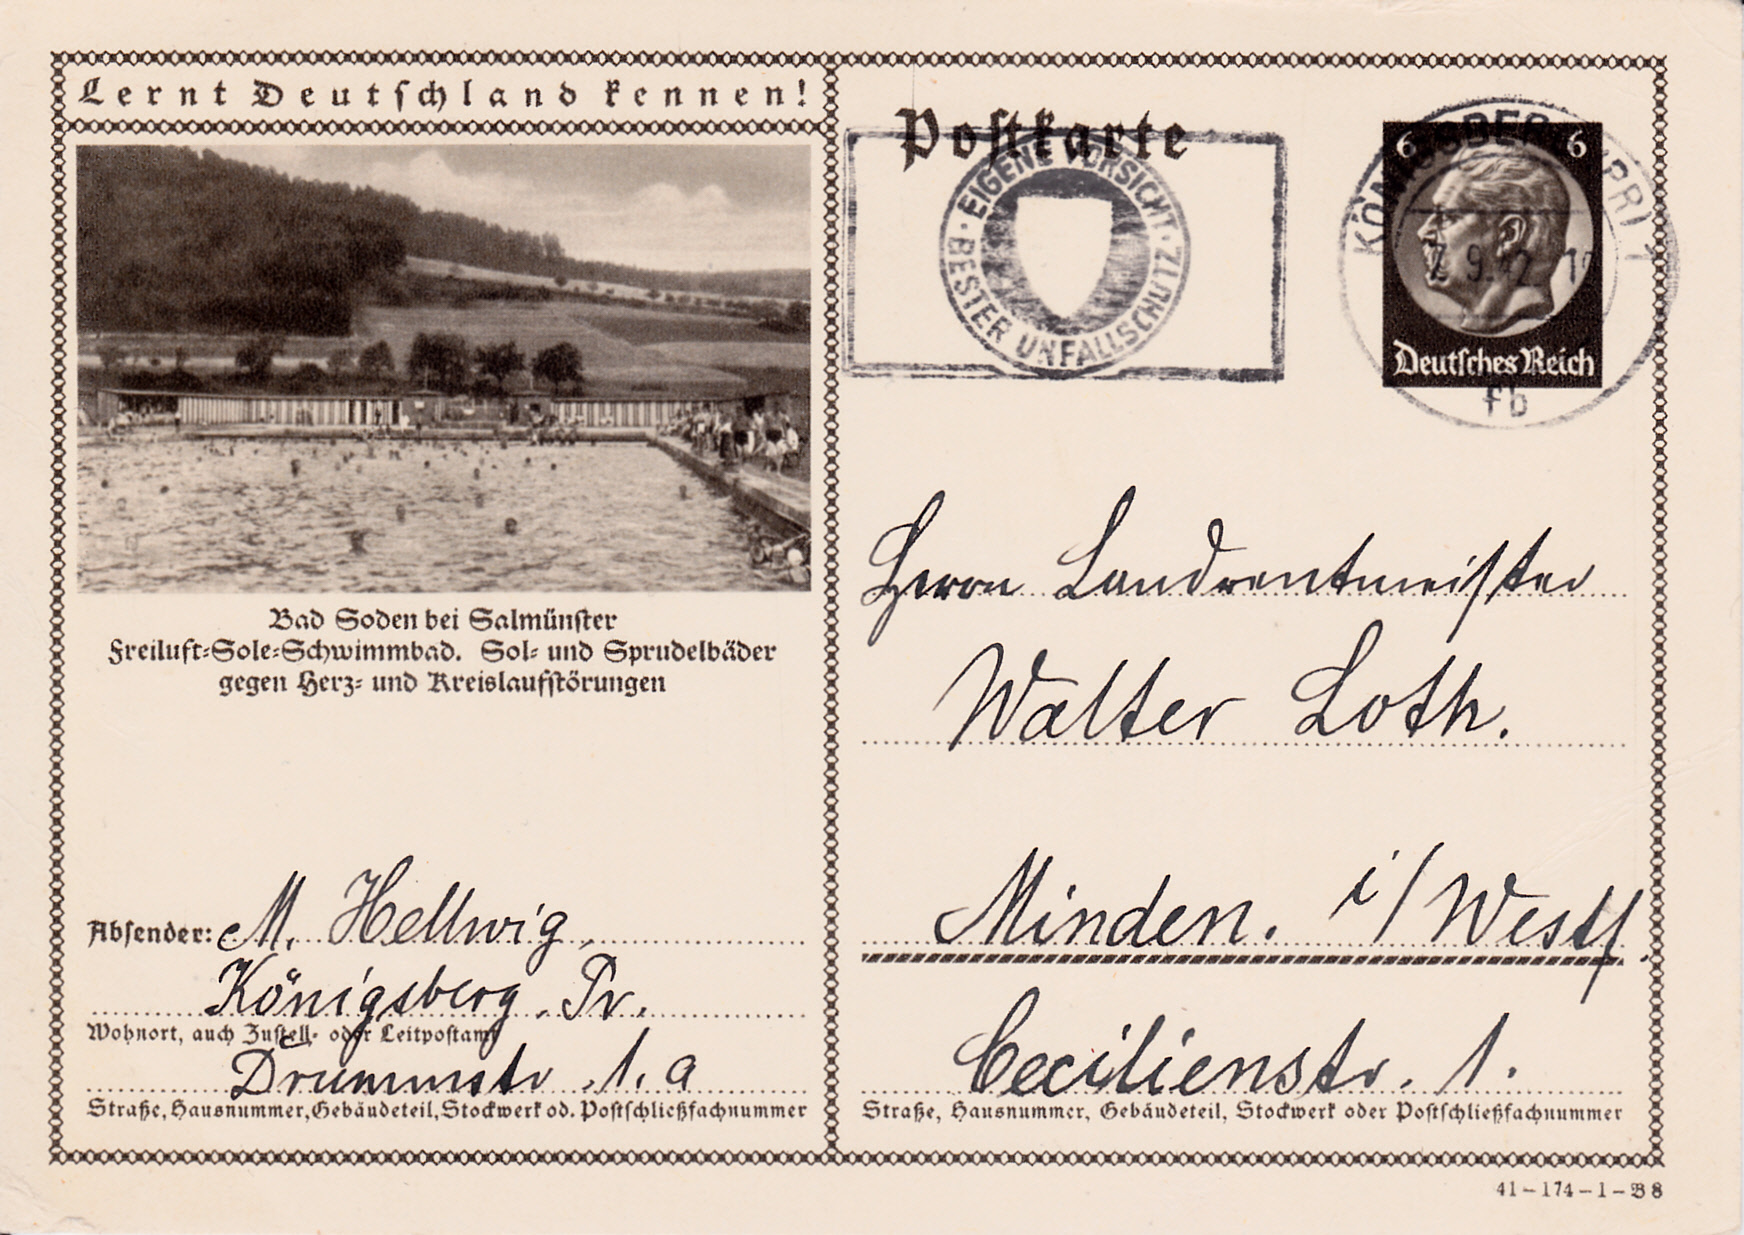 Lernt Deutschland kennen!
Bad Soden bei Salmünster
Freiluft-Sole-Schwimmbad. Sol- und Sprudelbäder
gegen Herz- und Kreislaufstörungen
Absender: M. Hellwig,
Königsberg. Pr.
Wohnort, auch Zustell- oder Leitpostamt
Drummstr. 1. a
Straße, Hausnummer, Gebäudeteil, Stockwerk od. Postschließfachnummer
Postkarte
EIGENE VORSICHT · BESTER UNFALLSCHUTZ ·
6 6
Deutsches Reich
(PR) 1
fb
Herrn Landrentmeister
Walter Loth.
Minden. i/Westf.
Cecilienstr. 1.
Straße, Hausnummer, Gebäudeteil, Stockwerk oder Postschließfachnummer
41-174-1-B8